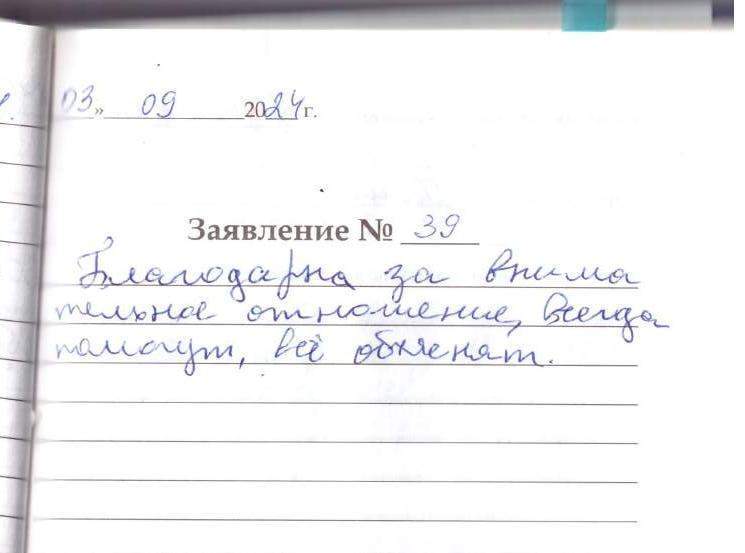 03» 09 2024г.
Заявление № 39
Благодарна за внима
тельное отношение, всегда
помогут, всё объяснят.